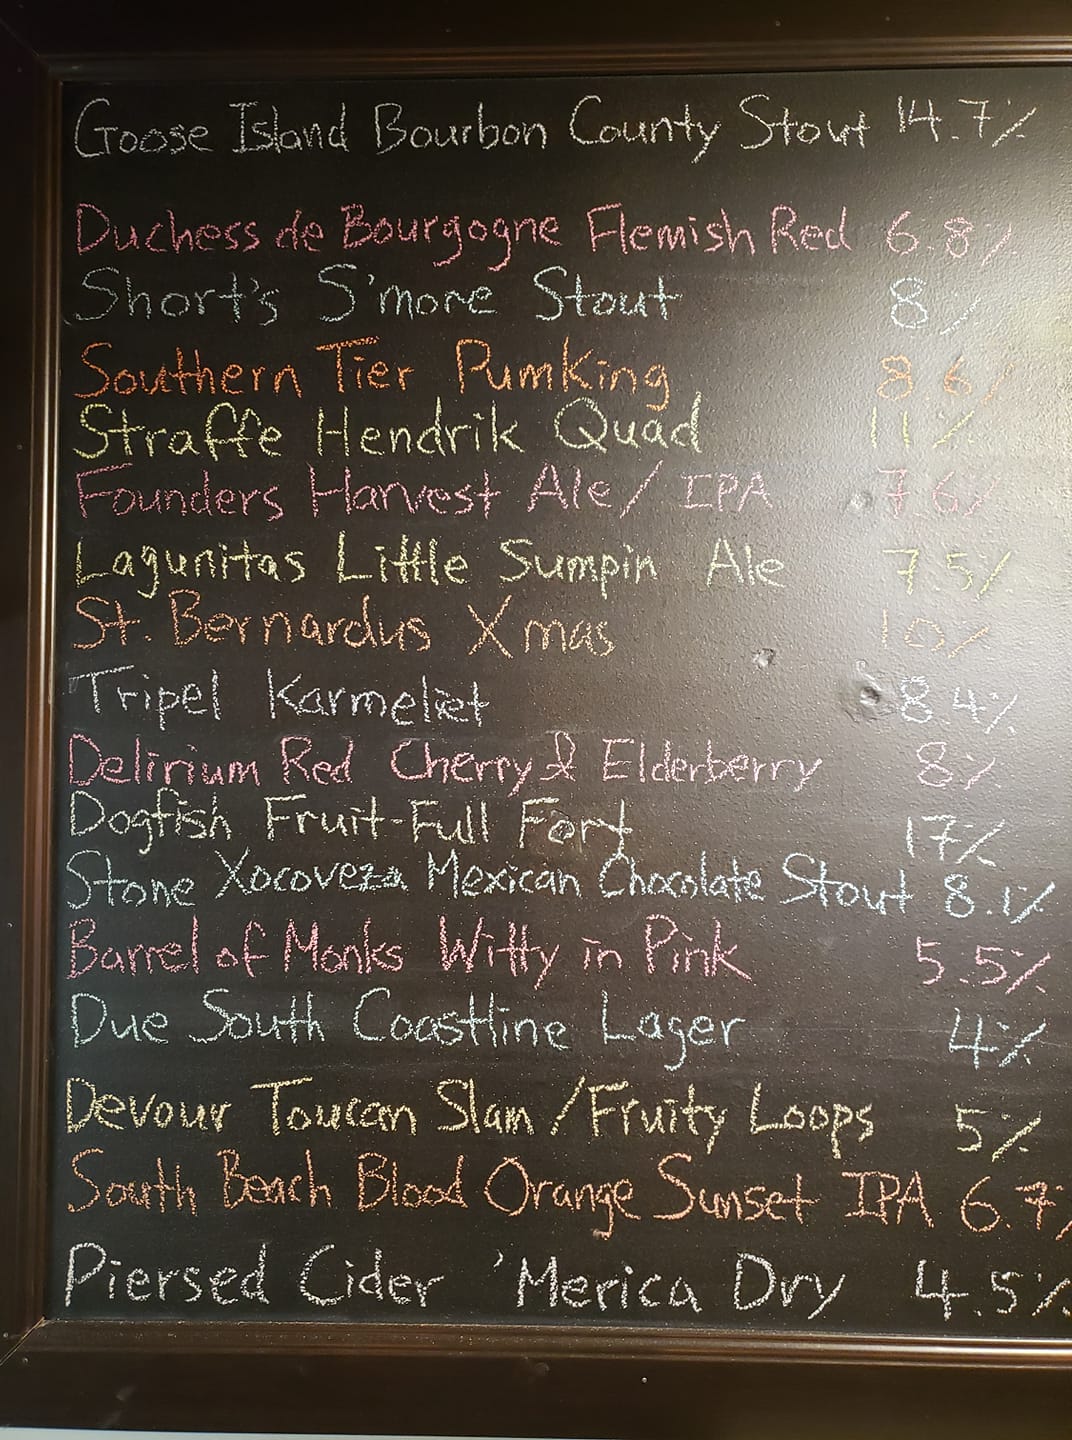 Goose Island Bourbon County Stout 14.7%
Duchess de Bourgogne Flemish Red 6.8%
Short's S'more Stout 8%
Southern Tier Pumking 8.6%
Straffe Hendrik Quad 11%
Founders Harvest Ale/ IPA 7.6%
Lagunitas Little Sumpin Ale 7.5%
St. Bernardus Xmas 10%
Tripel Karmeliet 8.4%
Delirium Red Cherry & Elderberry 8%
Dogfish Fruit-Full Fort 17%
Stone Xocoveza Mexican Chocolate Stout 8.1%
Barrel of Monks Witty in Pink 5.5%
Due South Coastline Lager 4%
Devour Toucan Slam /Fruity Loops 5%
South Beach Blood Orange Sunset IPA 6.7%
Piersed Cider 'Merica Dry 4.5%